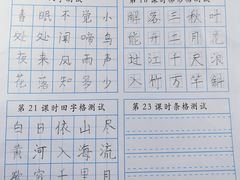 春眠不觉小
处处闻啼鸟
夜来风雨声
花落知多少
解落三秋叶
能开二月
过江千尺浪
入竹万竿斜
第21课时田字格测试
白日依山尽
黄河入海流
千里目
第23课时条格测试